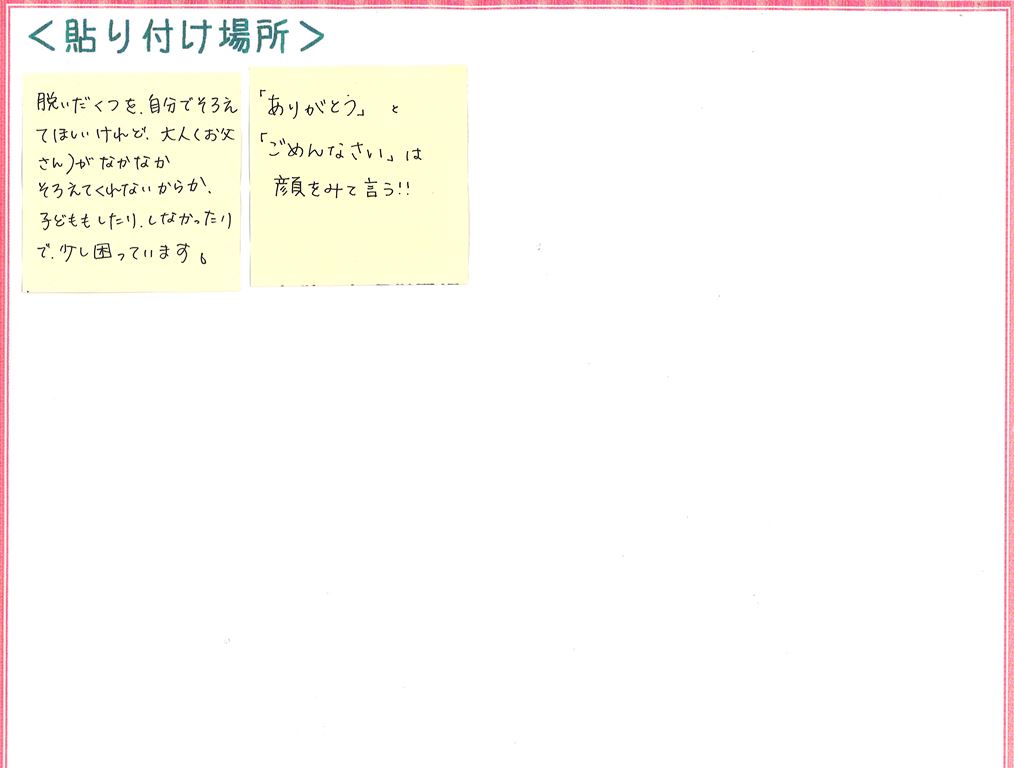 ＜貼り付け場所＞
脱いだくつを、自分でそろえ
てほしいけれど、大人（お父
さん）が なかなか
そろえてくれないからか、
子どももしたり、しなかったり
で、少し困っています。
「ありがとう」 と
「ごめんなさい」は
顔をみて言う!!